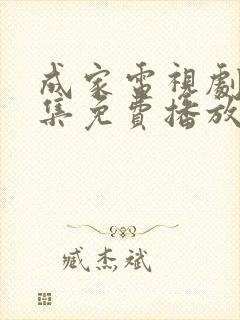 成家電視劇
集免費播放
臧杰斌